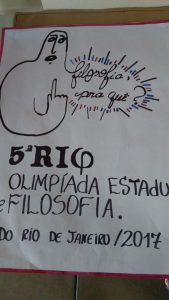 filosofia,
pra quê?
5ª RIφ
OLIMPÍADA ESTADU
e FILOSOFIA.
DO RIO DE JANEIRO/2017